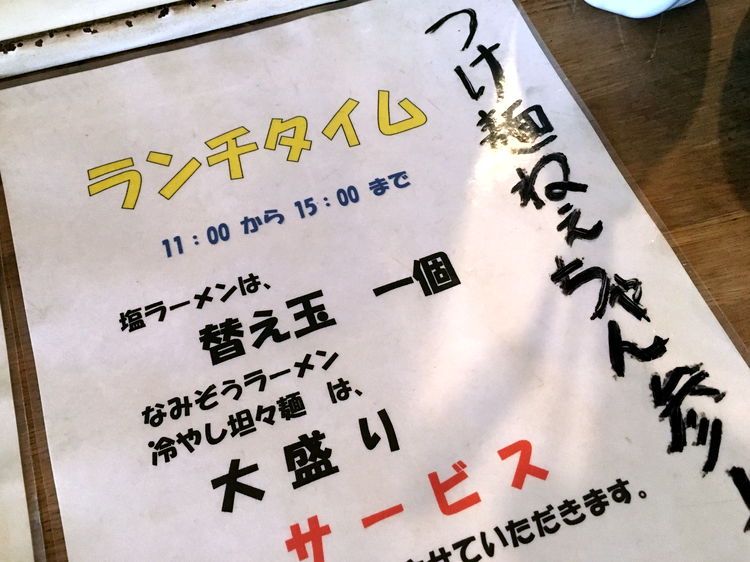 ランチタイム
11:00 から 15:00 まで
塩ラーメンは、
替え玉 一個
なみぞうラーメン
冷やし坦々麺 は、
大盛り
サービス
せていただきます。
つけ麺ねぇちゃん参